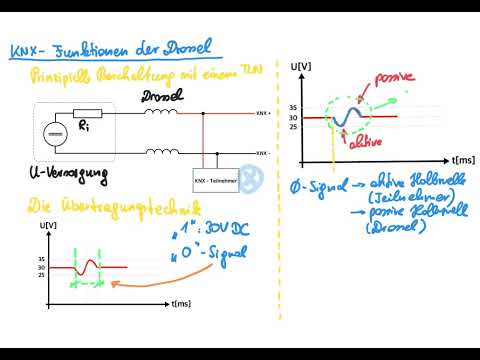 KNX- Funktionen der Drossel
Prinzipielle Beschaltung mit einem TLN
Drossel
Ri
KNX +
KNX -
KNX - Teilnehmer
U-Versorgung
Die Übertragungstechnik
U[V]
35
30
25
t[ms]
„1": 30V DC
„0"-Signal
U[V]
35
30
25
t[ms]
passive
aktive
0-Signal → aktive Halbwelle
(Teilnehmer)
→ passive Halbwelle
(Drossel)